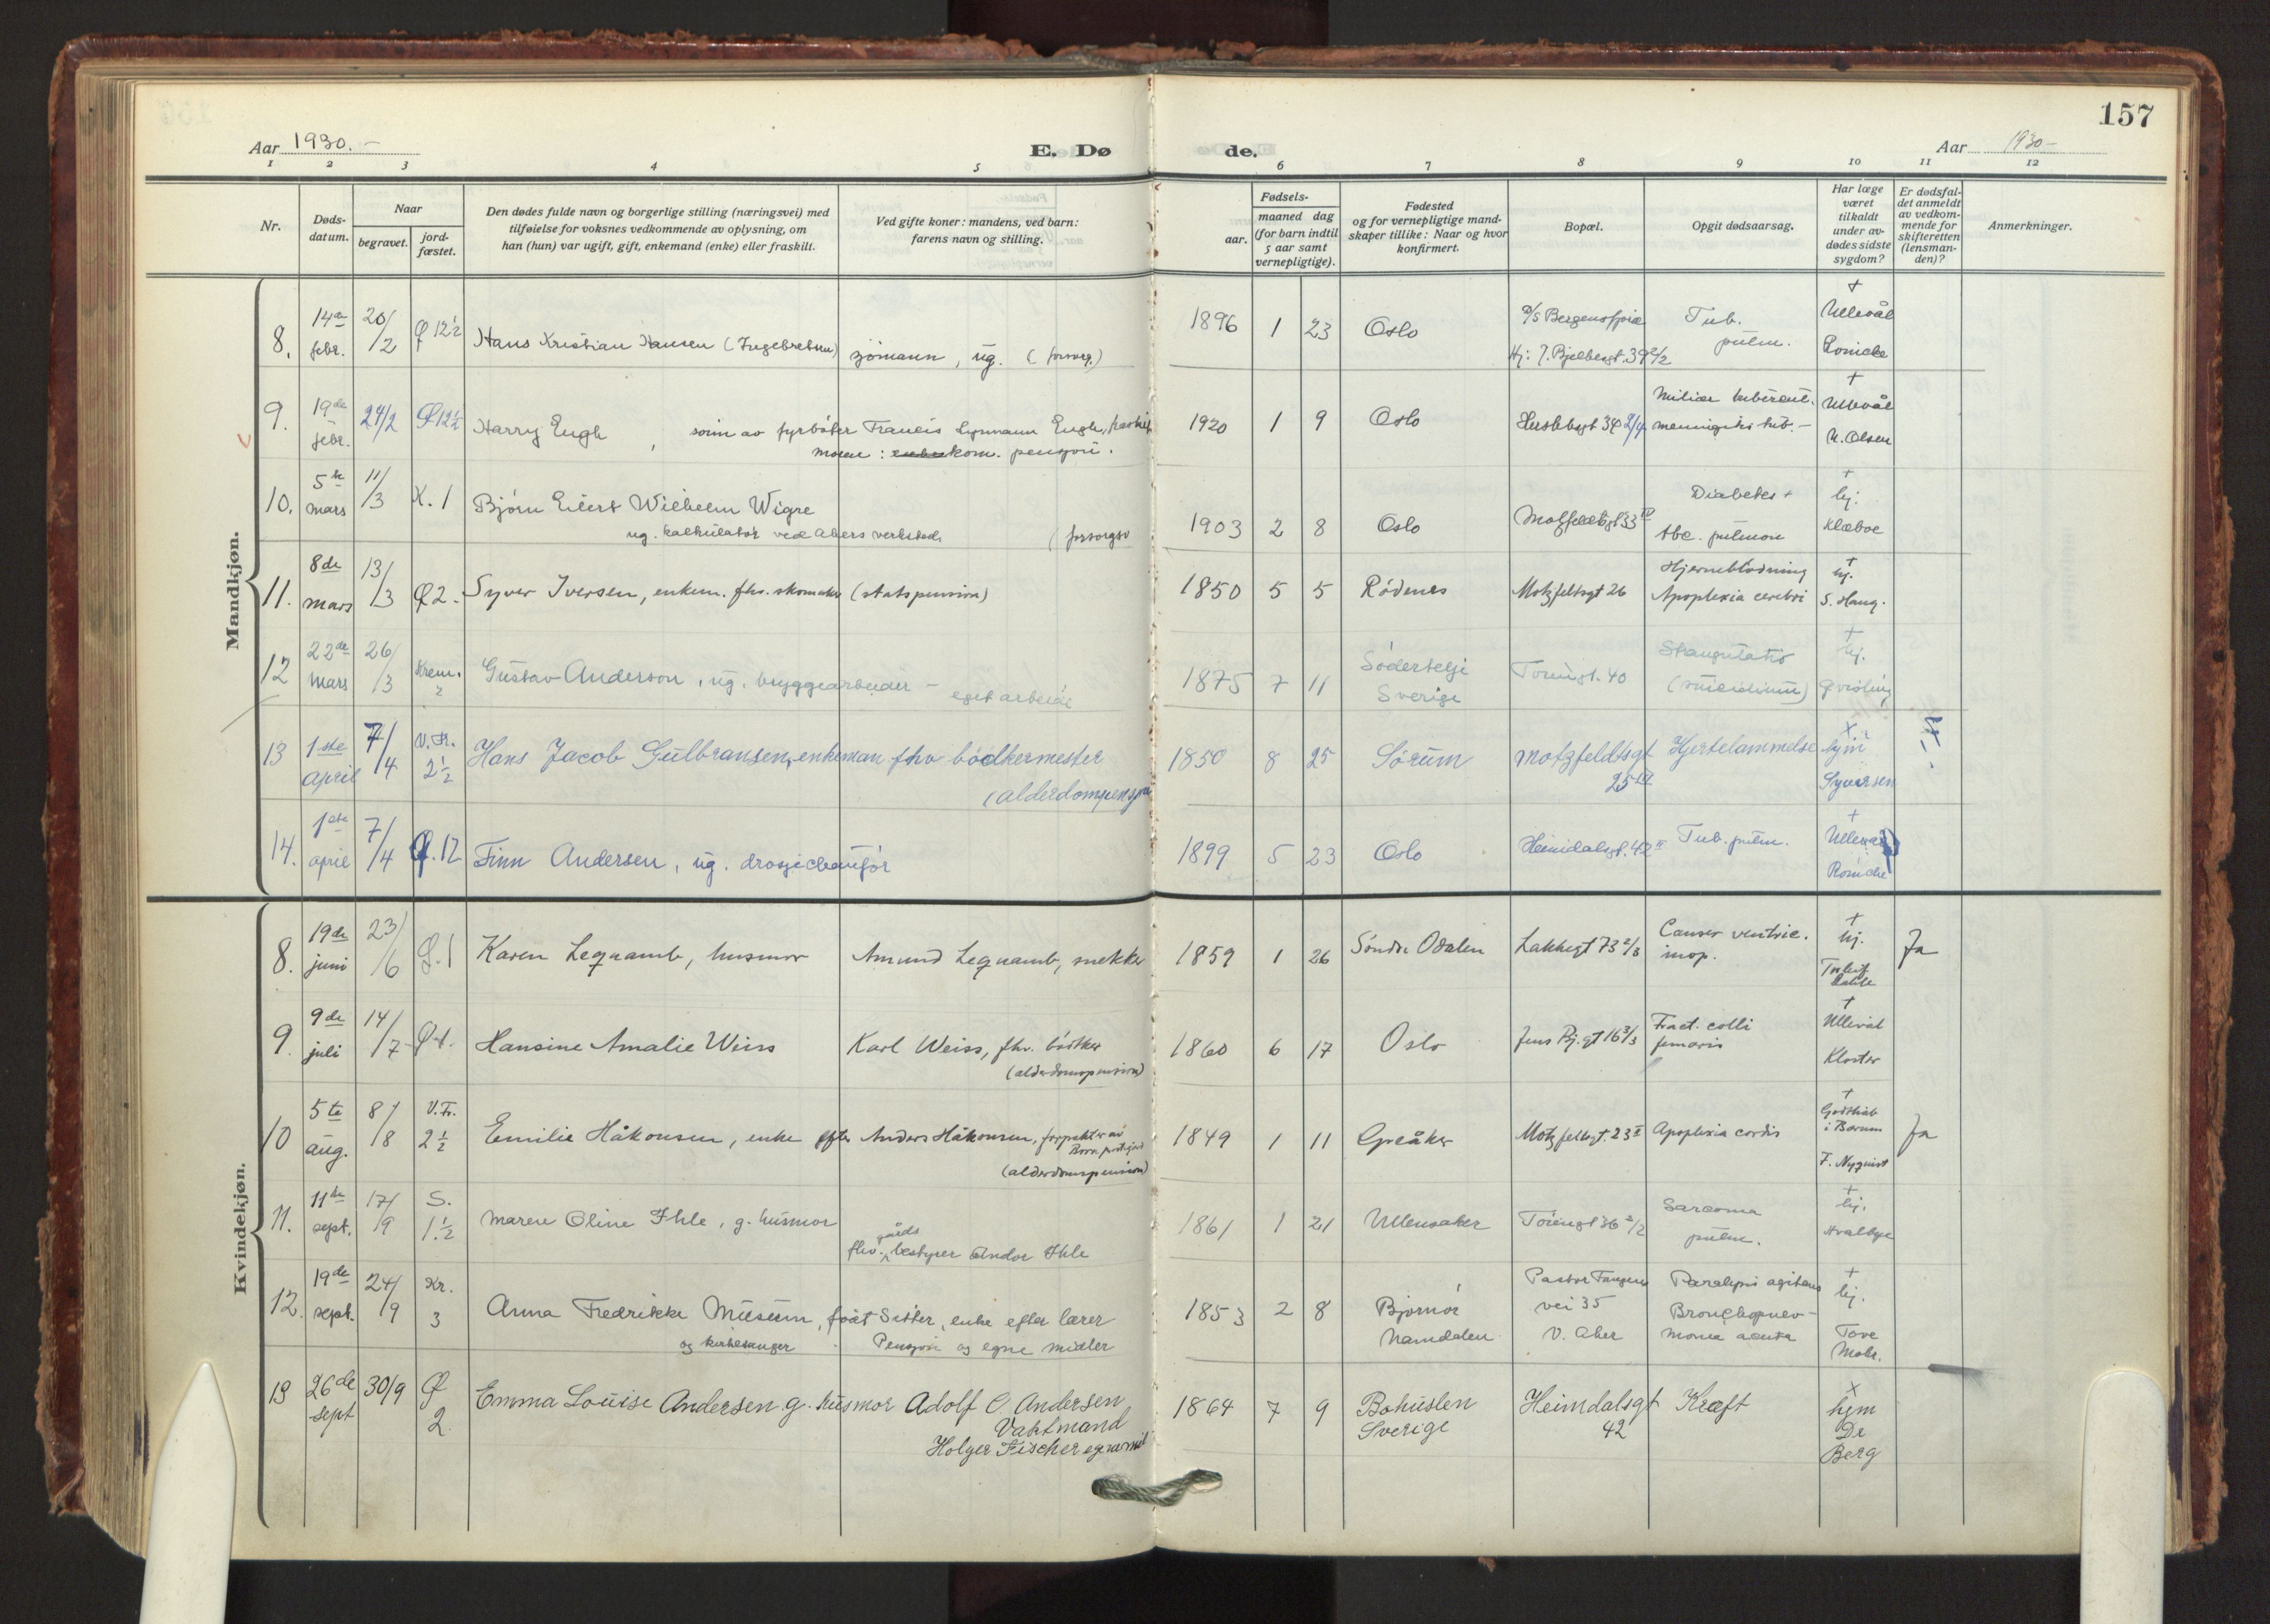 157
Aar 1930.-
E. Dø de.
Aar 1930-
1 2 3 4 5 6 7 8 9 10 11 12
Nr.
Døds-
datum.
Naar
begravet.
jord-
fæstet.
Den dødes fulde navn og borgerlige stilling (næringsvei) med
tilføielse for voksnes vedkommende av oplysning, om
han (hun) var ugift, gift, enkemand (enke) eller fraskilt.
Ved gifte koner: mandens, ved barn:
farens navn og stilling.
Fødsels-
aar.
maaned dag
(for barn indtil
5 aar samt
vernepligtige).
Fødested
og for vernepligtige mand-
skaper tillike: Naar og hvor
konfirmert.
Bopæl.
Opgit dødsaarsag.
Har læge
været
tilkaldt
under av-
dødes sidste
sygdom?
Er dødsfal-
det anmeldt
av vedkom-
mende for
skifteretten
(lensman-
den)?
Anmerkninger.
Mandkjøn.
8. 14de febr. 20/2 Ø 12½ Hans Kristian Hansen (Ingebretsen) sjømann, ug. (forsorg.) 1896 1 23 Oslo
Hj: J. Bjelkesgt. 39 2/2
Tub. pulm.
+ Ullevål
9. 19de febr. 24/2 Ø 12½ Harry Engh, sønn av fyrbøter Francis Lynmann Engh,
moren: kom. pensjon.
1920 1 9 Oslo Herslebsgt 34 2/4
+ Ullevål
N. Olsen
10. 5te mars 11/3 K. 1 Bjørn Eilert Wilhelm Wigre
ug. kalkulatør ved Akers verksted (forsorgs
1903 2 8 Oslo Motzfeldtsgt 33 IV
Diabetes +
tbc. pulmon
+ hj.
Klæboe
11. 8de mars 13/3 Ø 2. Syver Iversen, enkem. fhv. skomaker (statspension)
1850 5 5 Rødenes Motzfeldtsgt 26
Hjerneblødning
Apoplexia cerebri
+ hj.
S. Haug.
12 22de mars 26/3 Krem. 2 Gustav Anderson, ug. bryggearbeider - eget arbeide
1875 7 11 Södertelje
Sverige
Tøiengt. 40
(suicidium)
+ hj.
Qvisling
13 1ste april 7/4 V. Fr. 2½ Hans Jacob Gulbransen, enkeman fhv bødkermester
(alderdompensjon
1850 8 25 Sørum Motzfeldtsgt
25 III
Hjertelammelse
x hjm
Syversen
14. 1ste april 7/4 Ø. 12 Finn Andersen, ug. drosjechauffør
1899 5 23 Oslo Heimdalsgt. 42 II Tub. pulm.
+ Ullevål
Kvindekjøn.
8. 19de juni 23/6 Ø. 1 Karen Leqnamb, husmor Amund Leqnamb, snekker
1859 1 26 Søndre Odalen Lakkegt 73 2/3
Cancer ventric.
inop.
+ hj.
Ja
9. 9de juli 14/7 Ø 1. Hansine Amalie Weiss Karl Weiss, fhv. bødker
(alderdomspension)
1860 6 17 Oslo Jens Bj. gt 16 3/3
Fract. colli
femoris
+ Ullevål
Kloster
10 5te aug. 8/8 V. Fr. 2½ Emilie Håkonsen, enke efter Anders Håkonsen, forpakter av
(alderdomspension)
1849 1 11 Greåker Motzfeldtsgt. 23 I Apoplexia cordis
+ Godthåb
i Bærum
F. Nyquist
Ja
11. 11te sept. 17/9 S. 1.½ Maren Oline Ihle, g. husmor
fhv. gårdsbestyrer Andor Ihle
1861 1 21 Ullensaker Tøiengt 36 2/2
Sarcoma
pulm.
+ hj.
Hvalbye
12. 19de sept. 24/9 Kr. 3 Anna Fredrikke Museum, født Sitter, enke efter lærer
og kirkesanger. Pensjon og egne midler
1853 2 8 Bjørnør
Namdalen
Pastor Fangens
vei 35
V. Aker
Paralysis agitans
Bronchopneu-
monia acuta
+ hj.
Tove
Mohr.
13 26de sept 30/9 Ø 2. Emma Louise Andersen g. husmor Adolf C. Andersen
Vaktmand
Holger Fischer
1864 7 9 Bohuslen
Sverige
Heimdalsgt
42
Kræft
x hjm
Dr
Berg